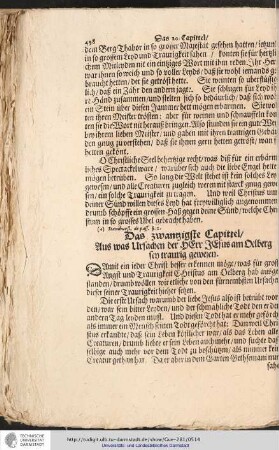 498 Das 20. Capittel/
dem Berg Thabor in so grosser Majestät gesehen hatten / jetzund
in so grossem Leyd und Traurigkeit sahen / konten sie für hertz-
lichem Mitleyden nit ein eintziges Wort mit ihm reden. Ihr Hertz
war ihnen so weich und so voller Leyds / daß sie wohl jemands ge-
braucht hetten / der sie getröst hette. Sie weynten so überflüssig-
lich / daß ein Zäher den andern jagte. Sie schlugen für Leyd ih-
re Händ zusammen / und stelten sich so
ein Stein über diesen Jammer hett mögen erbarmen. Sie wol-
ten ihren Meister trösten: aber für weynen und schnauffen kon-
ten sie die Wort nit herauß bringen. Also stunden sie ein gute Weil
bey ihrem lieben Meister / und gaben mit ihren traurigen Geber-
den gnug zu verstehen / daß sie ihnen gern hetten getröst / wan sie
hetten gekönt.
O Christliche Seel behertzige recht / was diß für ein erbärm-
liches Spectackel ware / warlich auch die liebe Engel hette
mögen betrüben. So lang die Welt stehet ist kein solches Ley
gewesen / und alle Creaturen zugleich weren nit starck gnug gewe-
sen / ein solche Traurigkeit zu tragen. Und weil Christus umb
deiner Sünd willen dieses Leyd hat freywillig angenommen
drumb schöpffe ein grossen Haß gegen deine Sünd / welche Chri-
stum in so grosses Übel gebracht haben.
Das zwantzigste Capittel /
Auß was Ursachen der HErr JEsus am Oelberg
sey traurig gewesen.
DAmit ein jeder Christ besser erkennen möge / was für grosse
Angst und Traurigkeit Christus am Oelberg hab außge-
standen / drumb wollen wir etliche von den fürnembsten Ursachen
dieser seiner Traurigkeit hieher setzen.
Die erste Ursach warumb der liebe Jesus also sehr betrübt wor-
den / war sein bitter Leyden / und der schmähliche Todt den er des
andern Tag leyden must. Und diesen Todt hat er mehr geförcht
als immer ein Mensch seinen Todt geförcht hat. Dan weil Chri-
stus erkandte / daß sein Leben köstlicher war / als das Leben aller
Creaturen / drumb liebte er sein Leben auch mehr / und suchte das-
selbige auch mehr vor dem Todt zu beschützen / als immer kein
Creatur gethan hat. Da er aber in dem Garten Gethsemani nun
sahe
http://tudigit.ulb.tu-darmstadt.de/show/Gue-7310/0514
Universitäts- und Landesbibliothek Darmstadt